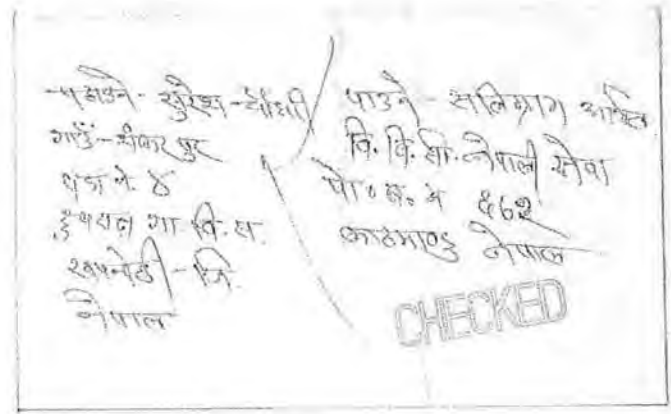 पठाउने - सुरेश - चौधरी
गाउँ - शंकरपुर
वडा नं. ४
गा. वि. स.
जि.
नेपाल
पाउने - सालिग्राम
वि. वि. सी. नेपाली सेवा
पो० ब० न
काठमाण्डु नेपाल
CHECKED